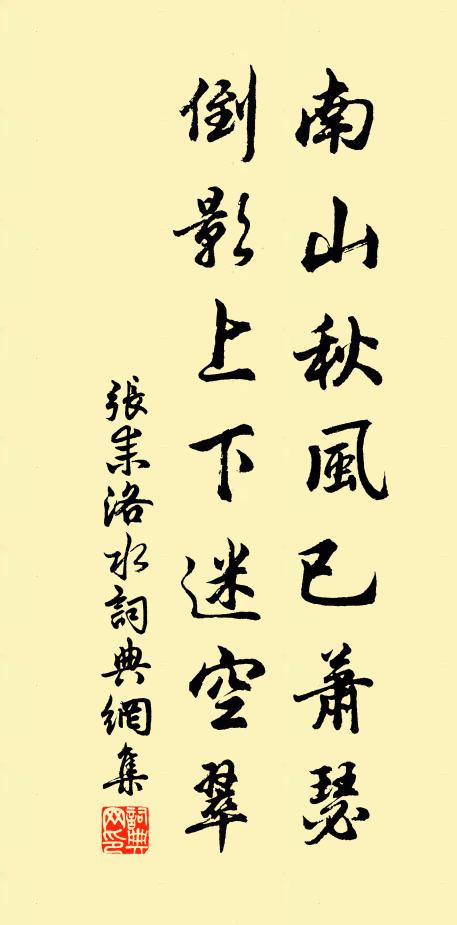 南山秋風已蕭瑟
倒影上下迷空翠
張耒洛水詞典網集
詞典网印